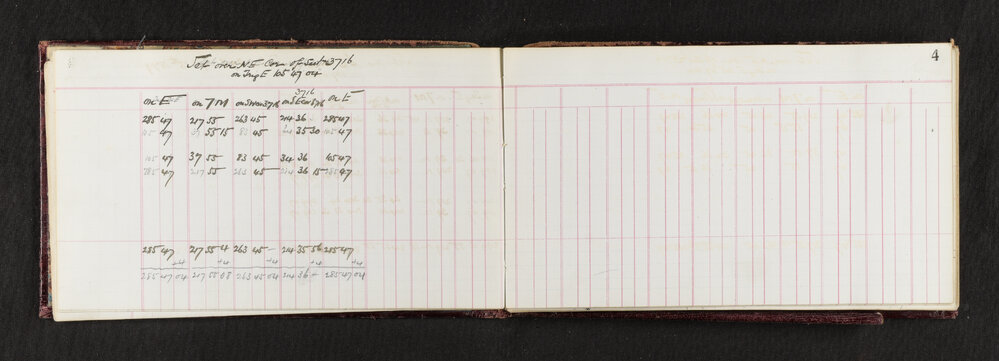 4
Set over N.E Corn of Sect 3716
on Trig E 105 47 04
3716
on E on TM on SW on 3716 on SE on 3716 on E
285 47 217 55 263 45 214 36 - 285 47
105 47 37 55 15 83 45 34 35 30 105 47
105 47 37 55 83 45 34 36 105 47
285 47 217 55 263 45 214 36 15 285 47
285 47 217 55 4 263 45 - 214 35 56 285 47
+4 +4 +4 +4 +4
285 47 04 217 55 08 263 45 04 214 36 - 285 47 04